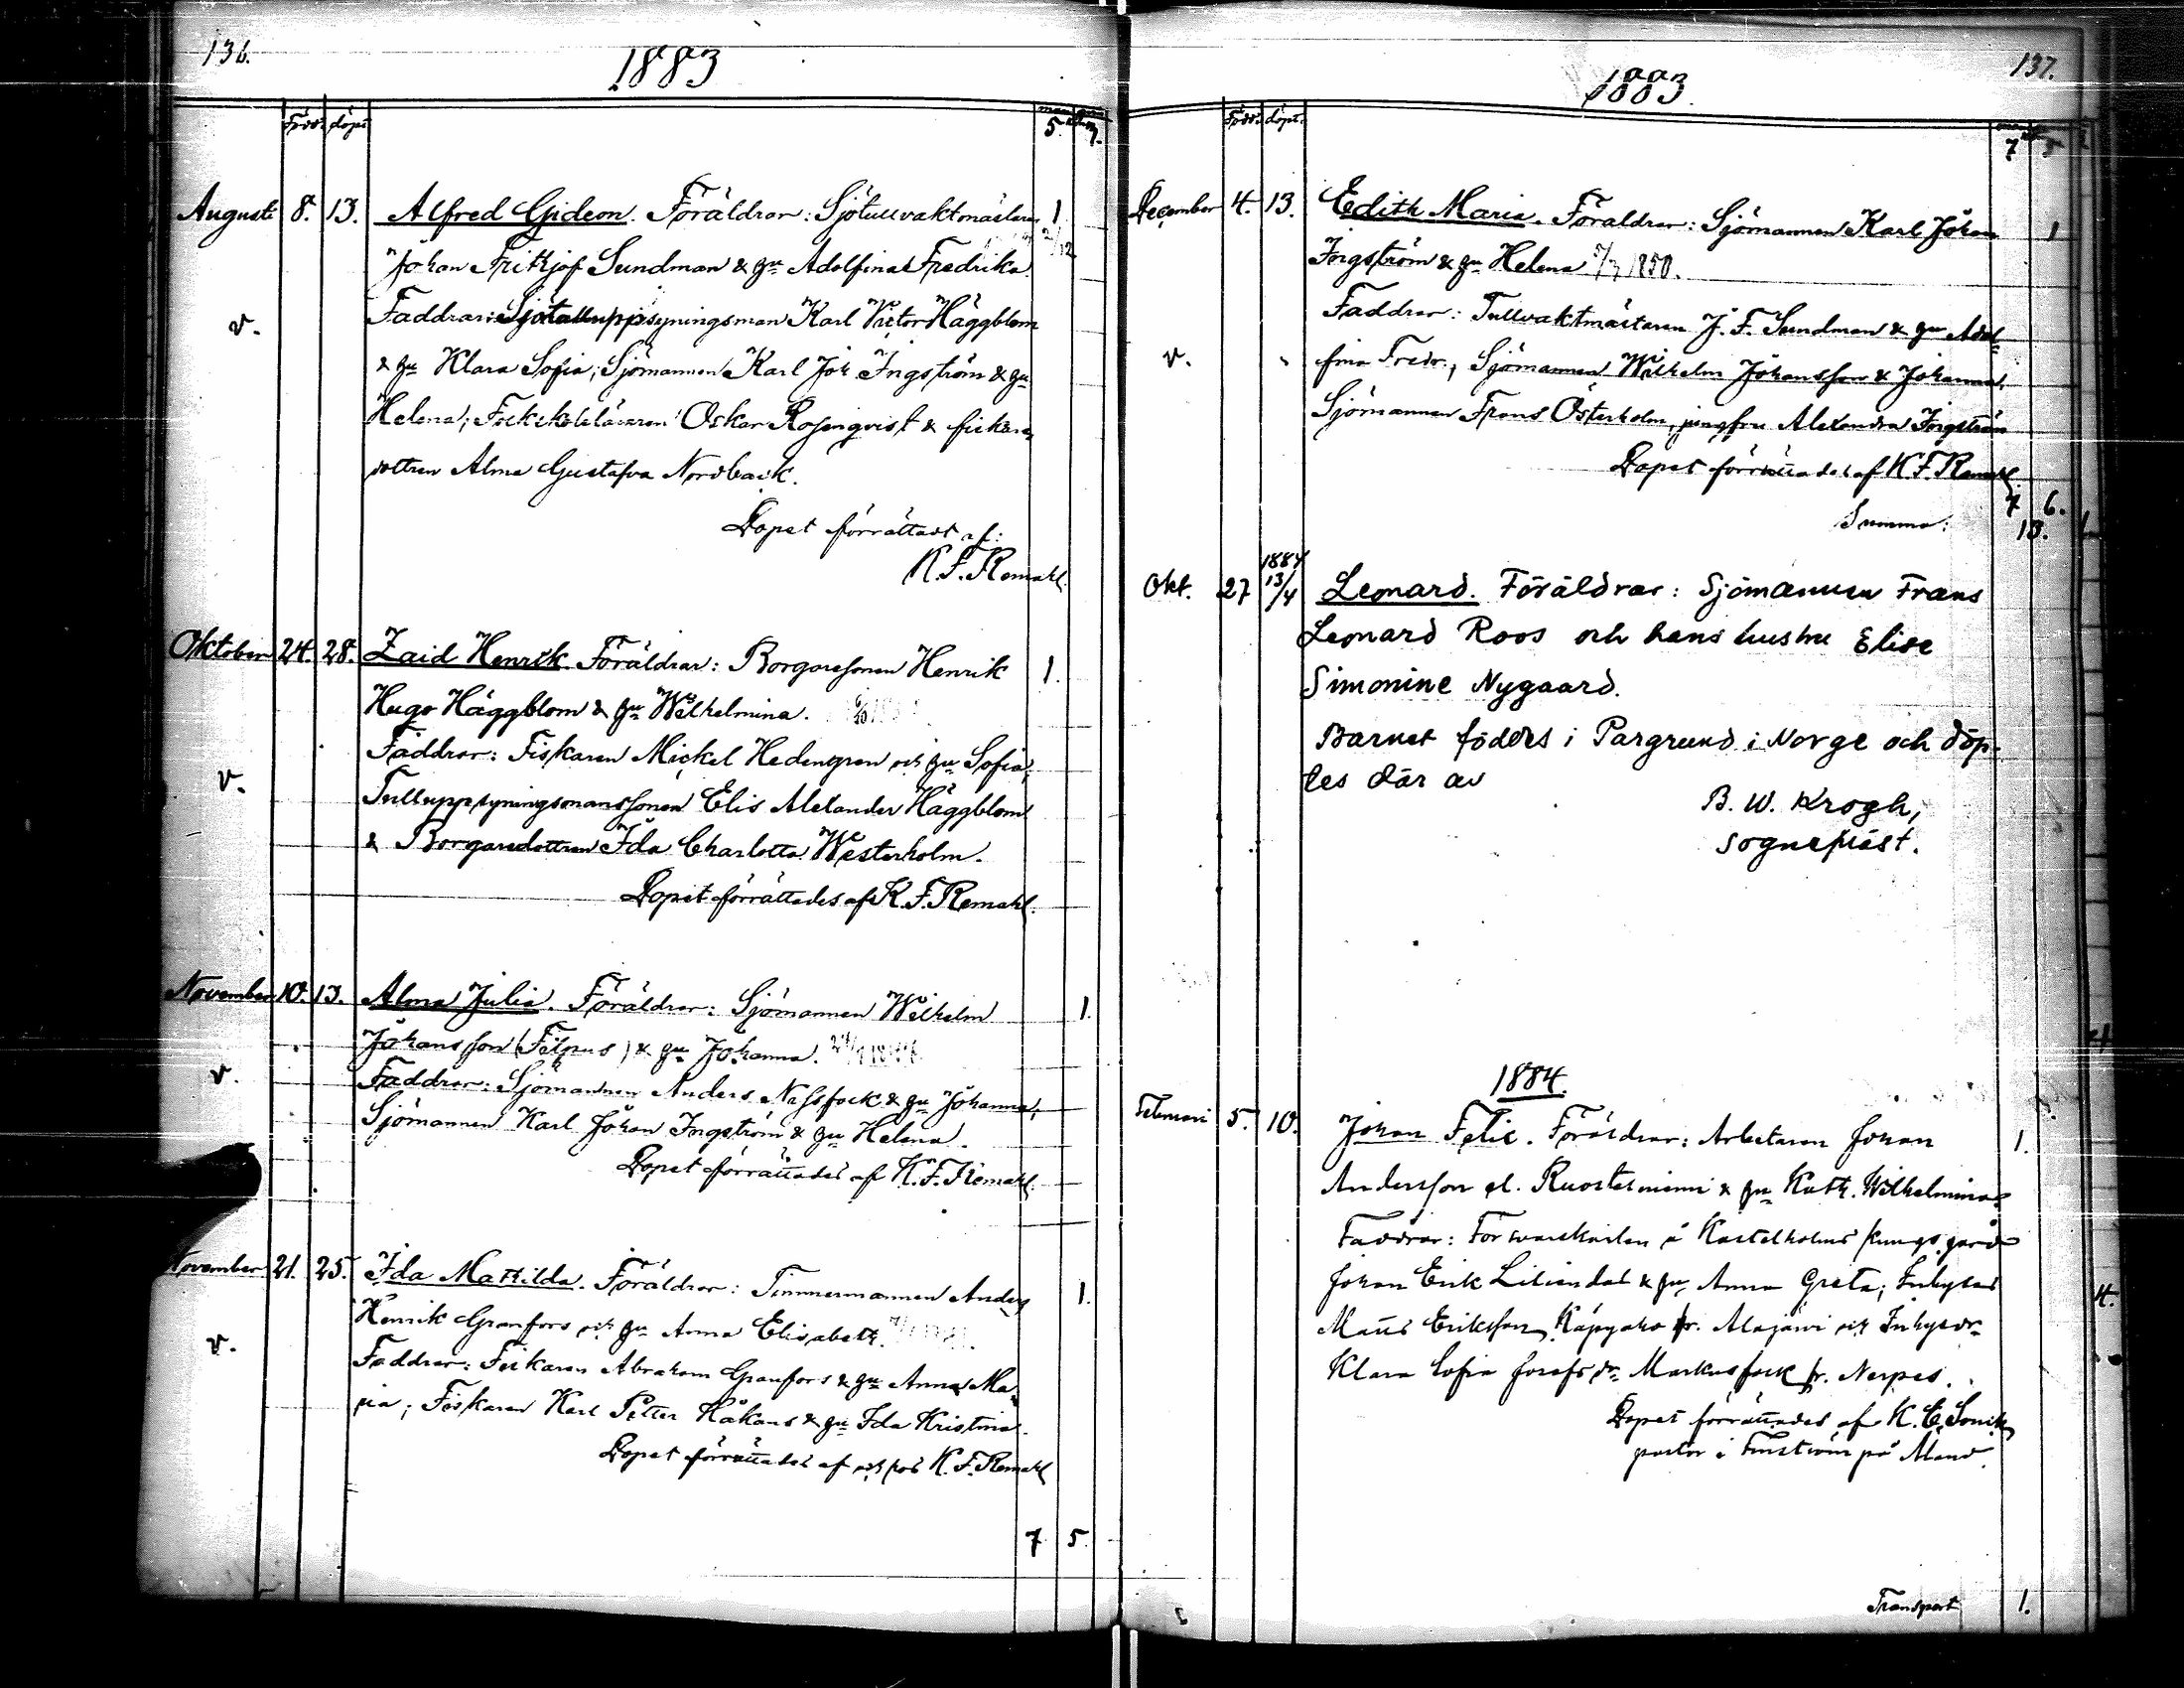 136.
1883
Född. döpt.
5. 7.
Augusti 8. 13. Alfred Gideon. Föräldrar: Sjötullvaktmästaren 1
Johan Fritkjof Sundman & hu Adolfina Fredrika.
Faddrar: Sjötulluppsyningsman Karl Victor Häggblom
v.
& hu Klara Sofia; Sjömannen Karl Joh Ingström & hu
Helena; Folkskoleläraren Oskar Rosenqvist & fiskare
dottren Alma Gustafva Nordback.
Dopet förrättadt af:
K. F. Remahl.
Oktober 24. 28. Zaid Henrik. Föräldrar: Borgaresonen Henrik 1.
Hugo Häggblom & hu Wilhelmina.
Faddrar: Fiskaren Mickel Hedengren och hu Sofia,
v.
Tulluppsyningsmanssonen Elis Alexander Häggblom
& Borgaredottren Ida Charlotta Westerholm.
Dopet förrättades af K. F. Remahl.
November 10. 13. Alma Julia. Föräldrar: Sjömannen Wilhelm 1.
Johansson (Filpus) & hu Johanna.
v.
Faddrar: Sjömannen Anders Nissfolk & hu Johanna,
Sjömannen Karl Johan Ingström & hu Helena.
Dopet förrättades af K. F. Remahl.
November 21. 25. Ida Mathilda. Föräldrar: Timmermannen Anders 1.
Henrik Granfors och hu Anna Elisabeth.
v.
Faddrar: Fiskaren Abraham Granfors & hu Anna Ma-
ria; Fiskaren Karl Petter Håkans & hu Ida Kristina.
Dopet förrättades af och hos K. F. Remahl
7 5
137.
1883.
Född. döpt.
7 5
December 4. 13. Edith Maria. Föräldrar: Sjömannen Karl Johan 1
Ingström & hu Helena 7/7 1850.
Faddrar: Tullvaktmästaren J. F. Sundman & hu Adol-
v.
fina Fredr., Sjömannen Wilhelm Johansson & Johanna,
Sjömannen Frans Österholm, jungfru Alexandra Ingström
Dopet förrättades af K. F. Remahl.
7 6.
Summa: 13.
1884
Okt. 27 13/4 Leonard. Föräldrar: Sjömannen Frans
Leonard Roos och hans hustru Elise
Simonine Nygaard.
Barnet föddes i Pargrund i Norge och döp-
tes där av
B. W. Krogh,
sognepräst.
1884.
Februari 5. 10. Johan Felix. Föräldrar: Arbetaren Johan 1.
Andersson el. Ruostesniemi & hu Kath. Wilhelmina
Faddrar: Försvarskarlen å Kastelholms kungsgård
Johan Erik Liliendal & hu Anna Greta; Inhyses
4.
Matts Eriksson Käpyaho fr. Alajärvi och Inhysesdr
Klara Sofia Josefsdr Markusfolk fr. Nerpes.
Dopet förrättades af K. E. Sonck
pastor i Finström på Åland.
Transport 1.